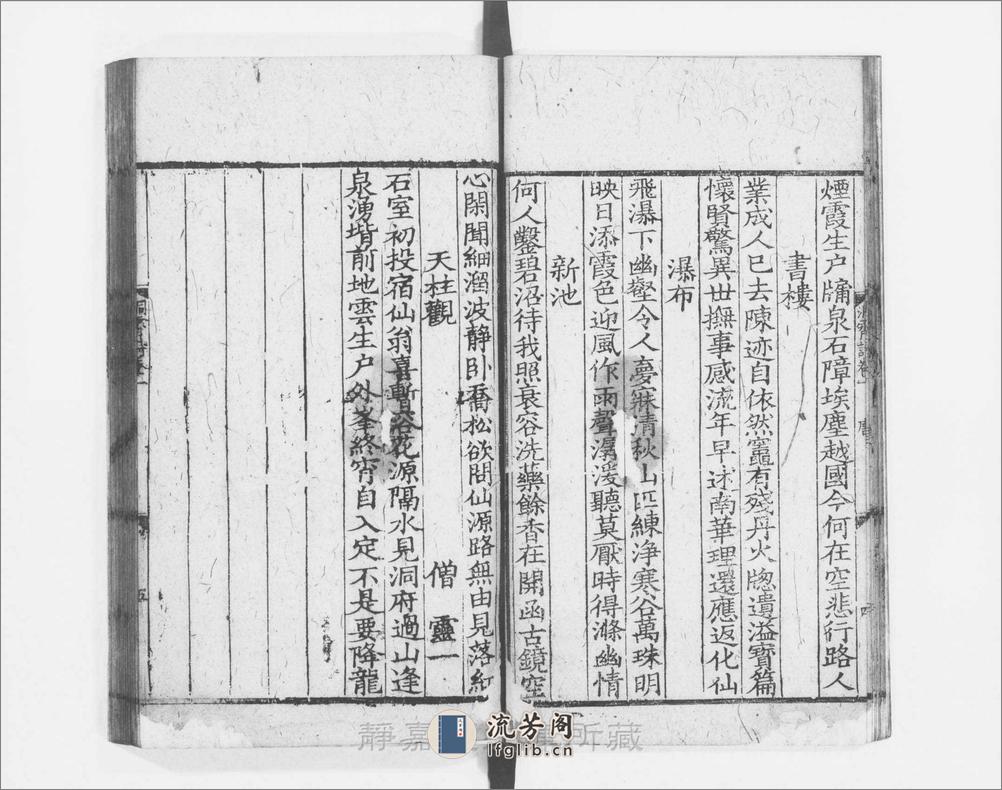 煙霞生户牖泉石障埃塵越國今何在空悲行路人
書樓
業成人已去陳迹自依然竈有殘丹火牕遺溢寶篇
懷賢驚異世撫事感流年早述南華理還應返化仙
瀑布
飛瀑下幽壑令人夢寐清秋山匹練淨寒谷萬珠明
映日添霞色迎風作雨聲潺湲聽莫厭時得滌幽情
新池
何人鑿碧沼待我照衰容洗藥餘香在開函古鏡空
四
心閑聞細溜波靜卧喬松欲問仙源路無由見落紅
天柱觀 僧靈一
石室初投宿仙翁喜暫容花源隔水見洞府過山逢
泉湧堦前地雲生户外峯終宵自入定不是要降龍
五
静嘉 所藏
流芳阁
lfglib.cn